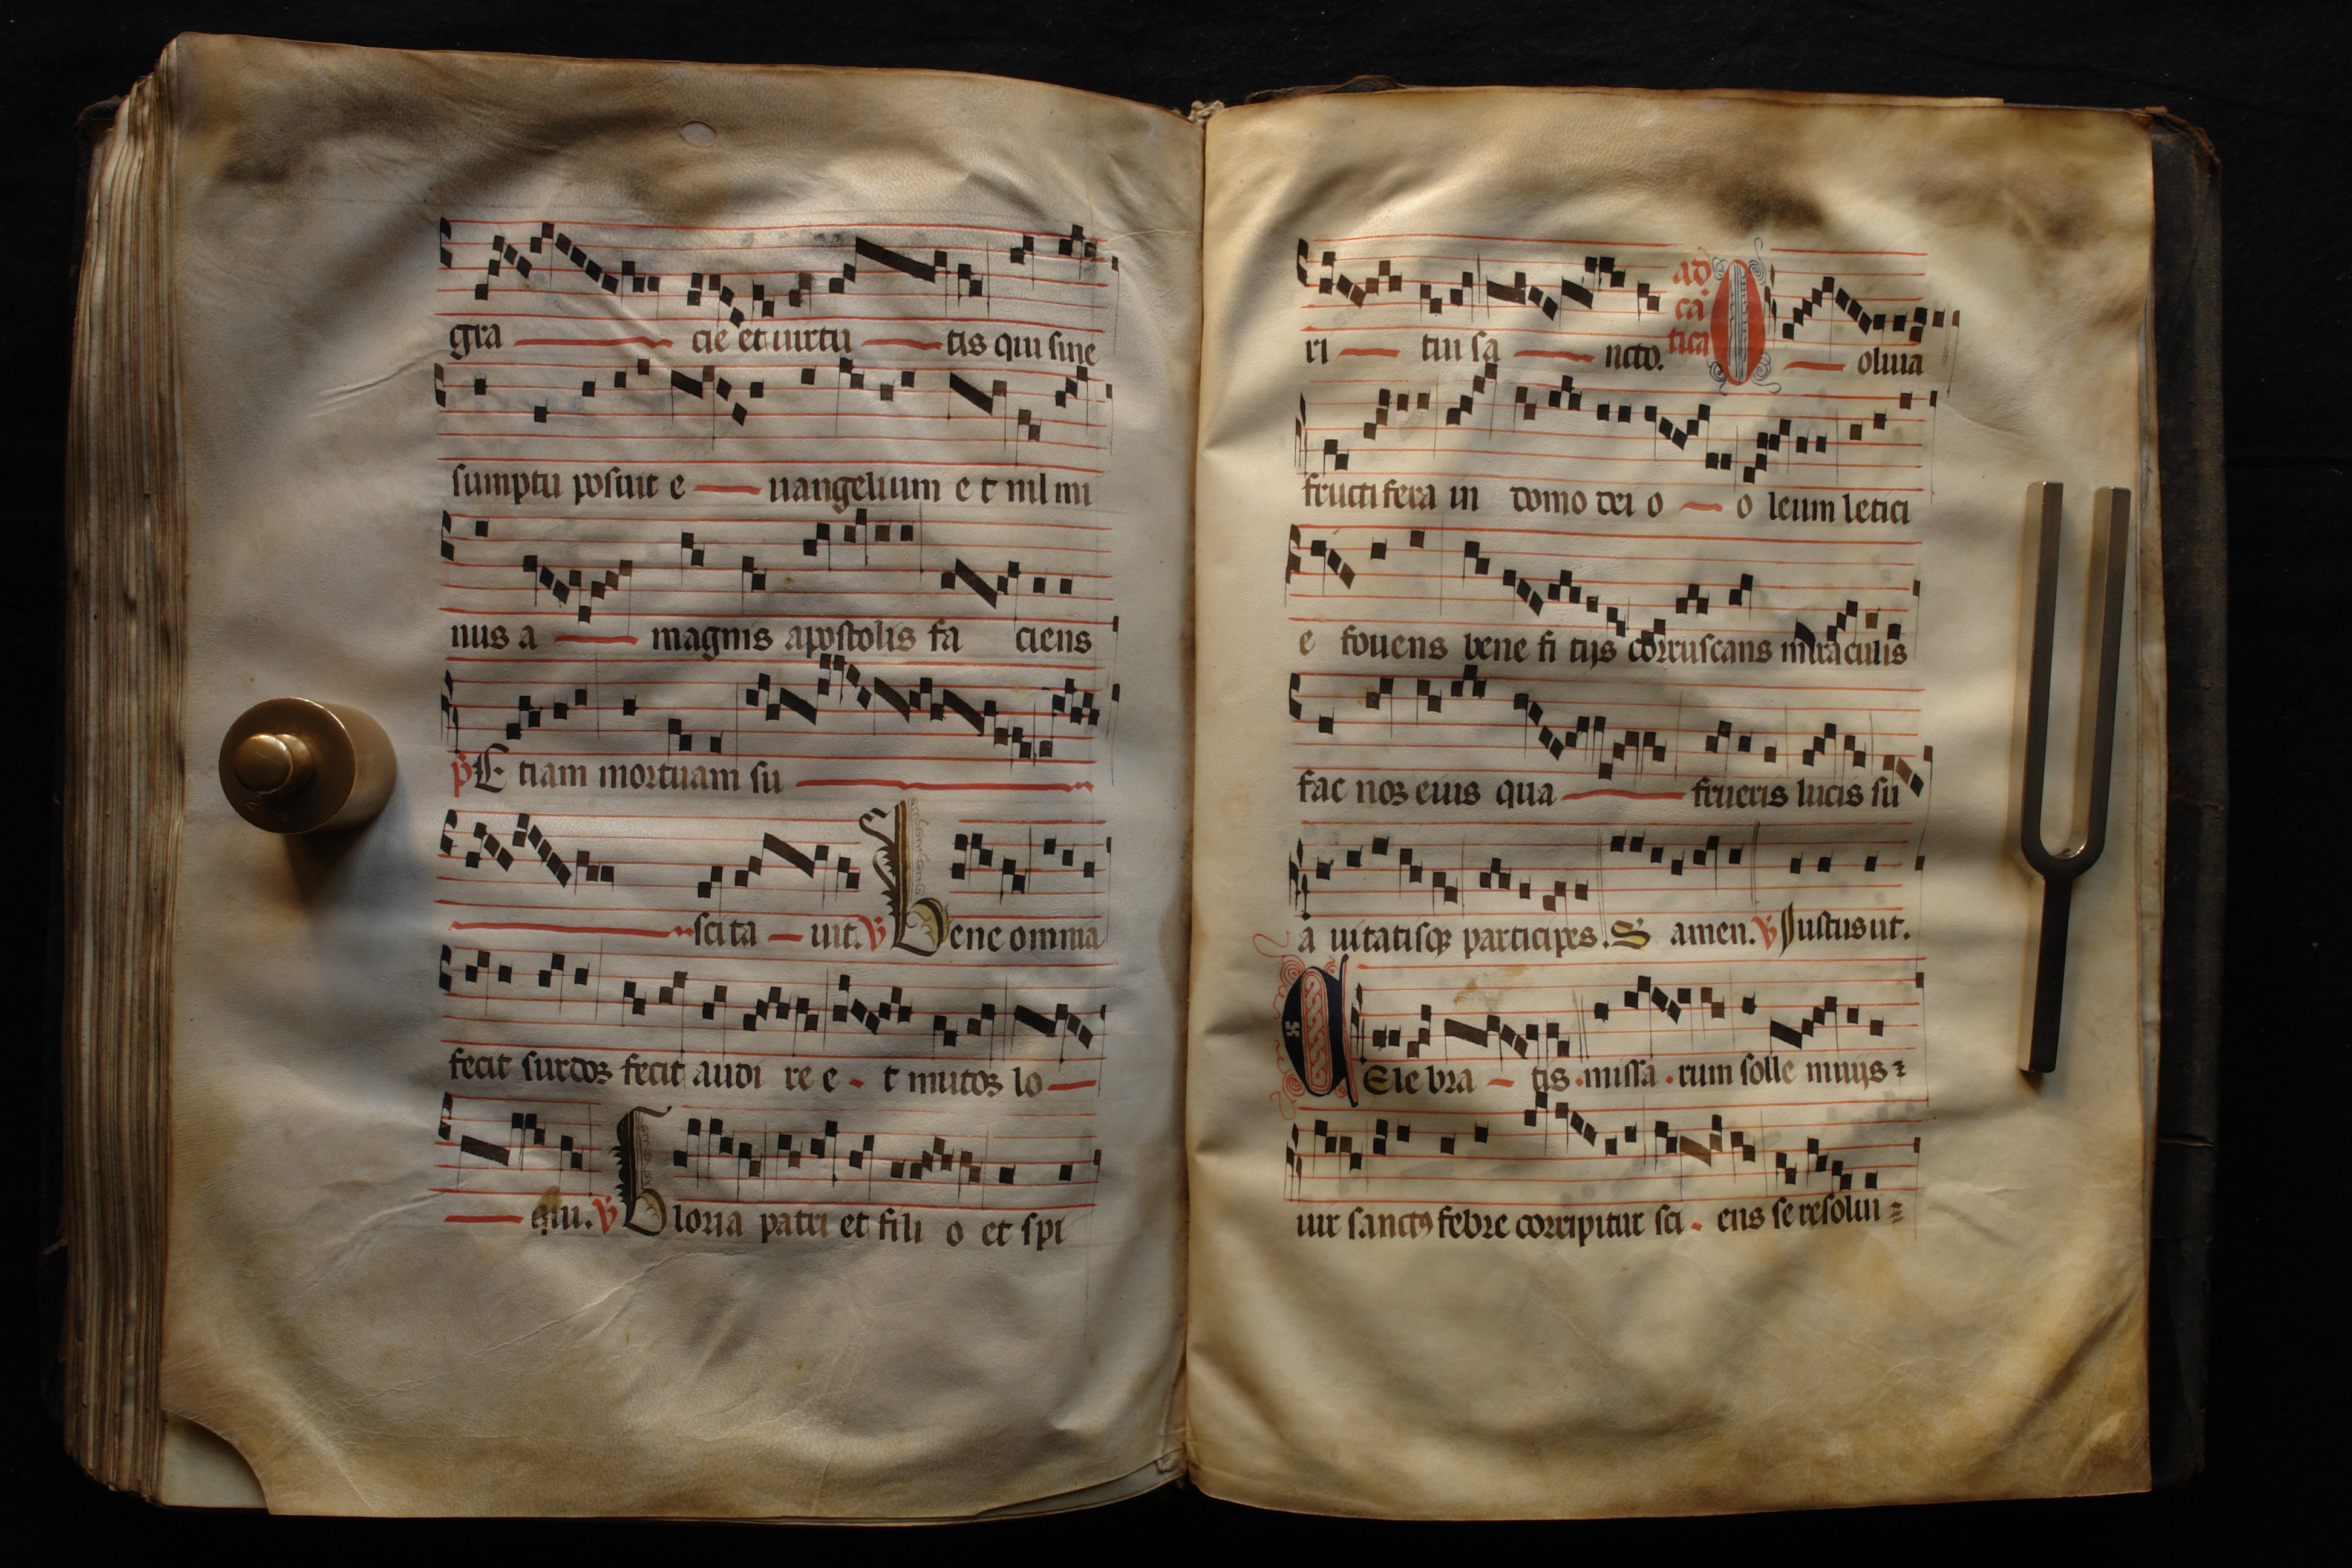 gra cie et uirtu tis qui sine
sumptu posuit e uangelium e t nil mi
nus a magnis apostolis fa ciens
p E tiam mortuam su
scita uit. v Bene omnia
fecit surdos fecit audi re e t mutos lo
qui. v Gloria patri et fili o et spi
ri tui sa ncto. ad ca tica O oliua
fructifera in domo dei o o leum letici
e fouens bene fi tijs corruscans miraculis
fac nos eius qua frueris lucis su
a uitatisqz participes. S amen. v Justus ut.
CEle bra tis missa rum solle mnijs
uir sanctꝰ febre corripitur sci ens se resolui